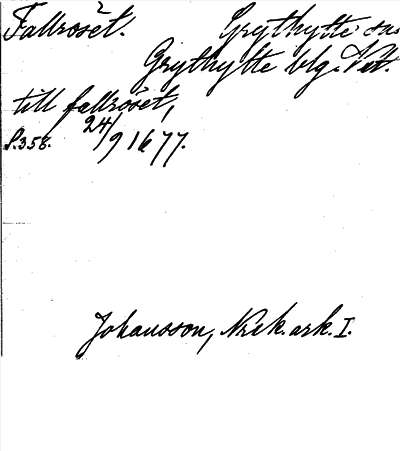 Fallroset. Grythytte sn
Grythytte blg. Vstm.
till fallroset,
s. 358. 24/9 1677.
Johansson, Norek. ark. I.